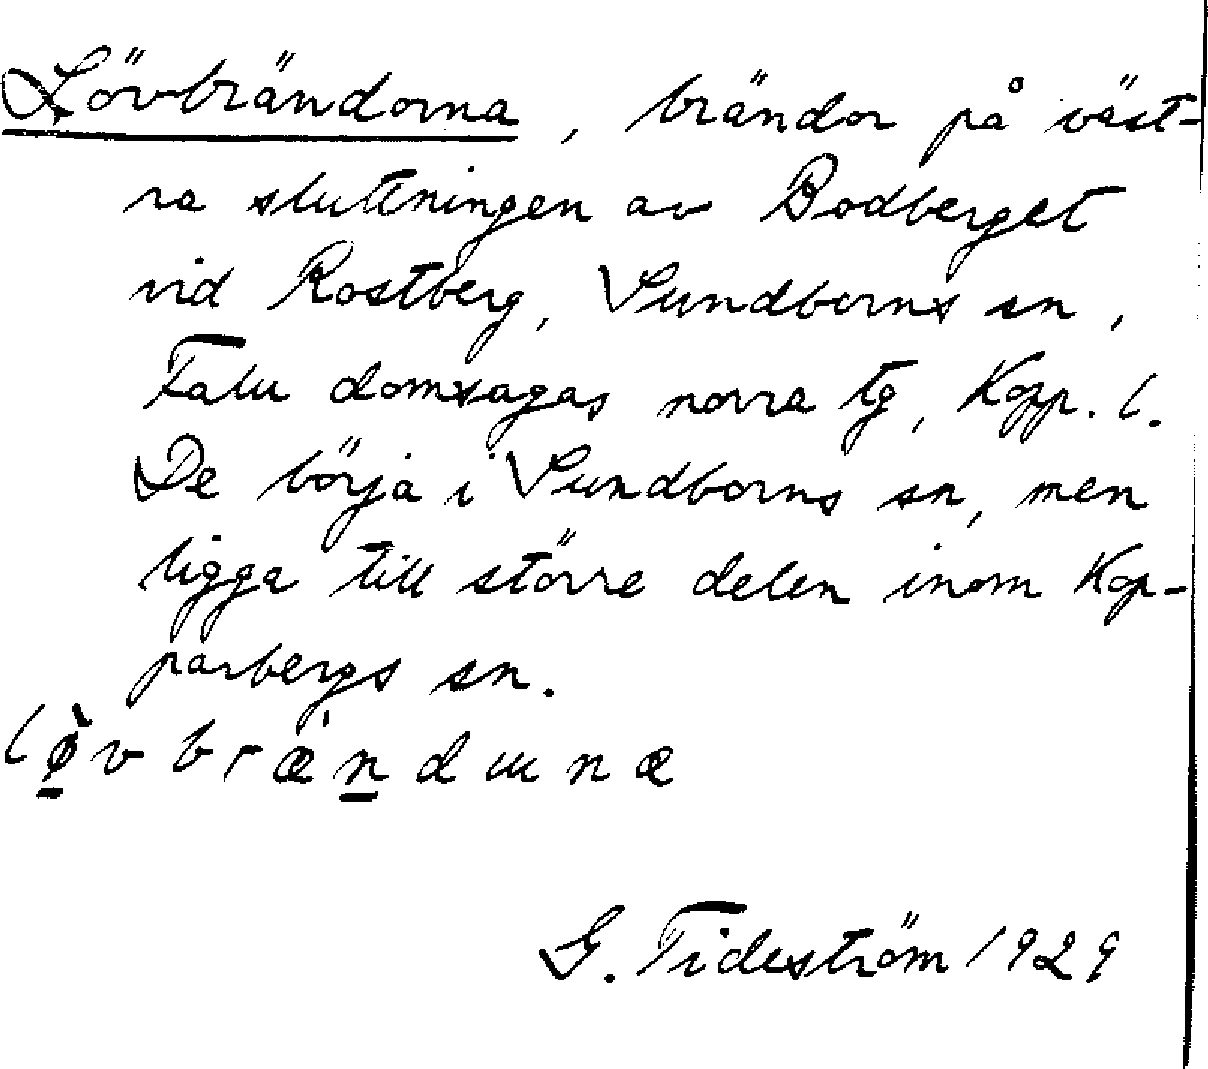 Lövbrändorna, brändor på väst-
ra sluttningen av Bodberget
vid Rostberg, Sundborns sn,
Falu domsagas norra tg, Kopp. l.
De börja i Sundborns sn, men
ligga till större delen inom Kop-
parbergs sn.
lø̠̀vbræ̀n̠dɯnæ
G. Tideström 1929